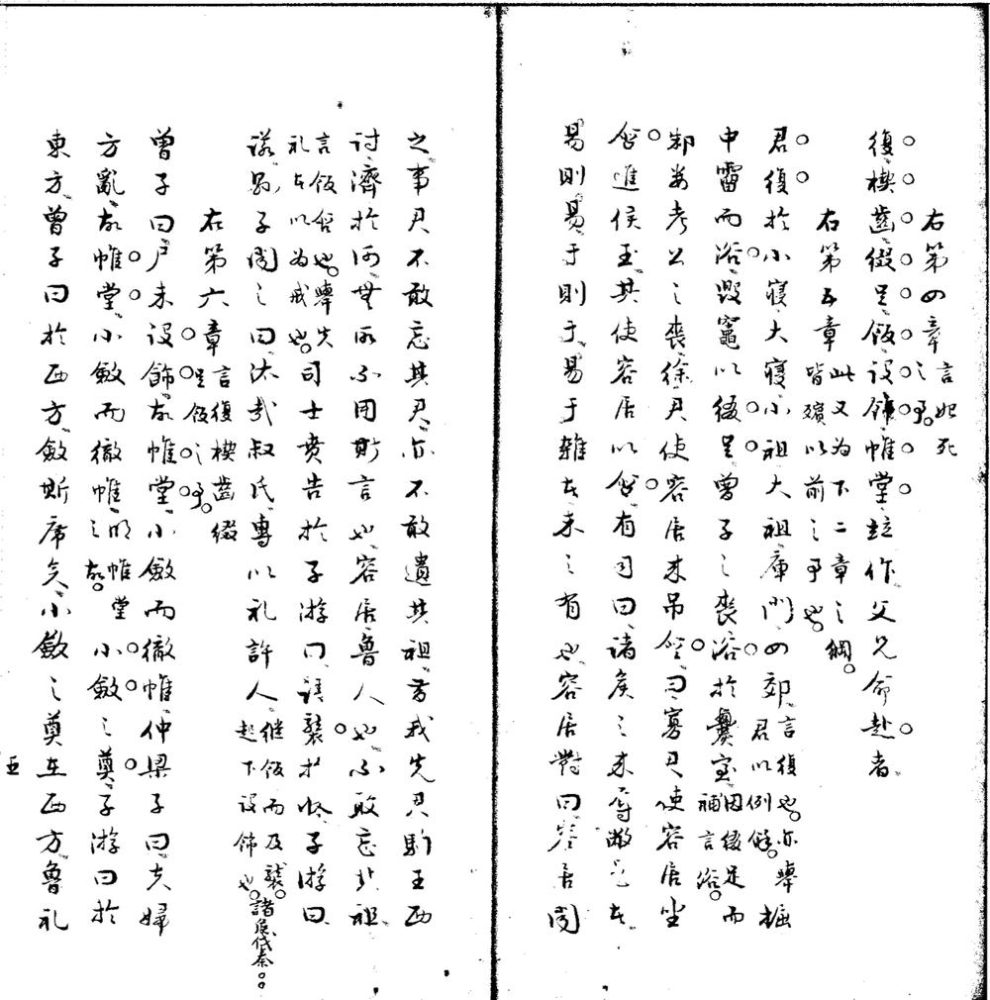 右第四章言始死之事
復楔齒綴足飯設飾帷堂並作父兄命赴者
右第五章此又為下二章之綱皆殯以前之事也
君復於小寢大寢小祖大祖庫門四郊言復也亦舉君以例餘掘
中霤而浴毀竈以綴足曾子之喪浴於爨室因綴足而補言浴
邾婁考公之喪徐君使容居來弔含曰寡君使容居坐
含進侯玉其使容居以含有司曰諸侯之來辱敝邑者
易則易于則于易于雜者未之有也容居對曰容居聞
之事君不敢忘其君亦不敢遺其祖昔我先君駒王西
討濟於河無所不用斯言也容居魯人也不敢忘其祖
言飯含也舉失礼者以為戒也司士賁告於子游曰請襲於牀子游曰
諾縣子聞之曰汰哉叔氏專以礼許人继飯而及襲起下設飾也諸
右第六章言復楔齒綴足飯之事
曾子曰尸未設飾故帷堂小斂而徹帷仲梁子曰夫婦
方亂故帷堂小斂而徹帷明帷堂之故小斂之奠子游曰於
東方曾子曰於西方斂斯席矣小斂之奠在西方魯礼
五